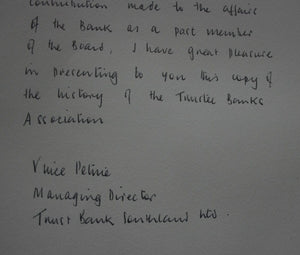 contribution made to the affairs
of the Bank as a past member
of the Board, I have great pleasure
in presenting to you this copy of
the history of the Trustee Banks
Association

Managing Director
Trust Bank Southland Ltd.